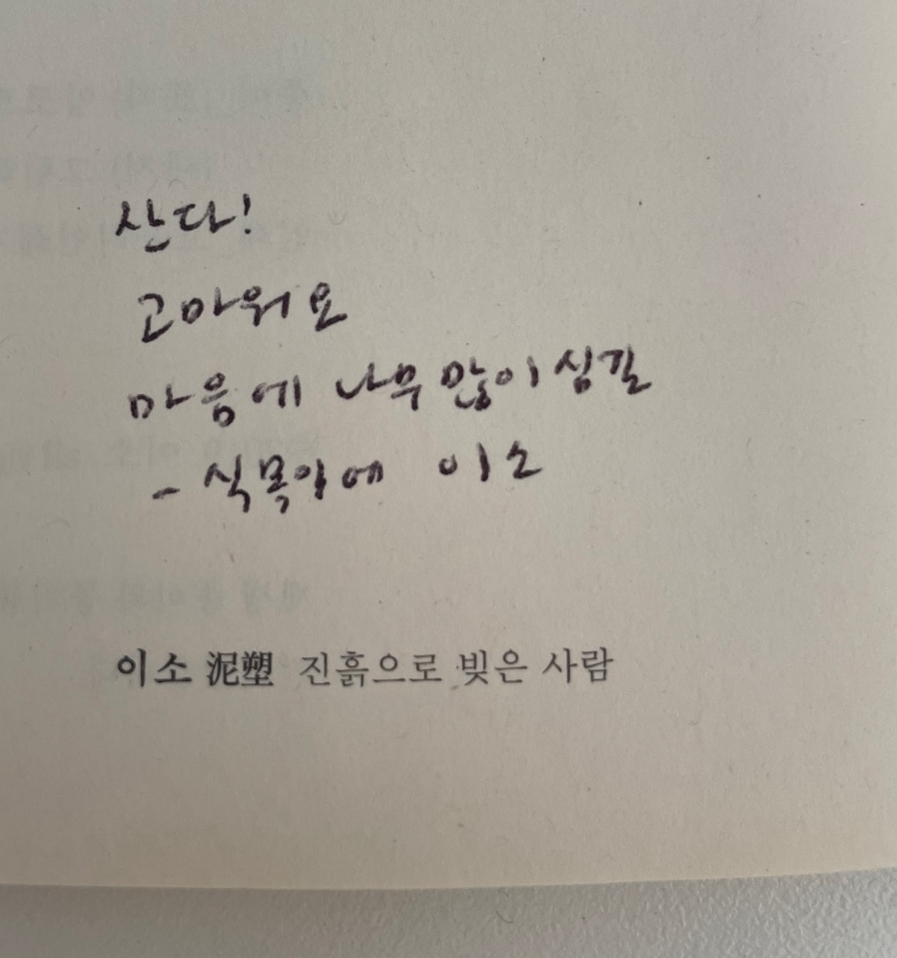 산다!
고마워요
마음에 나무 많이 심길
- 식목일에 이소
이소 泥塑 진흙으로 빚은 사람